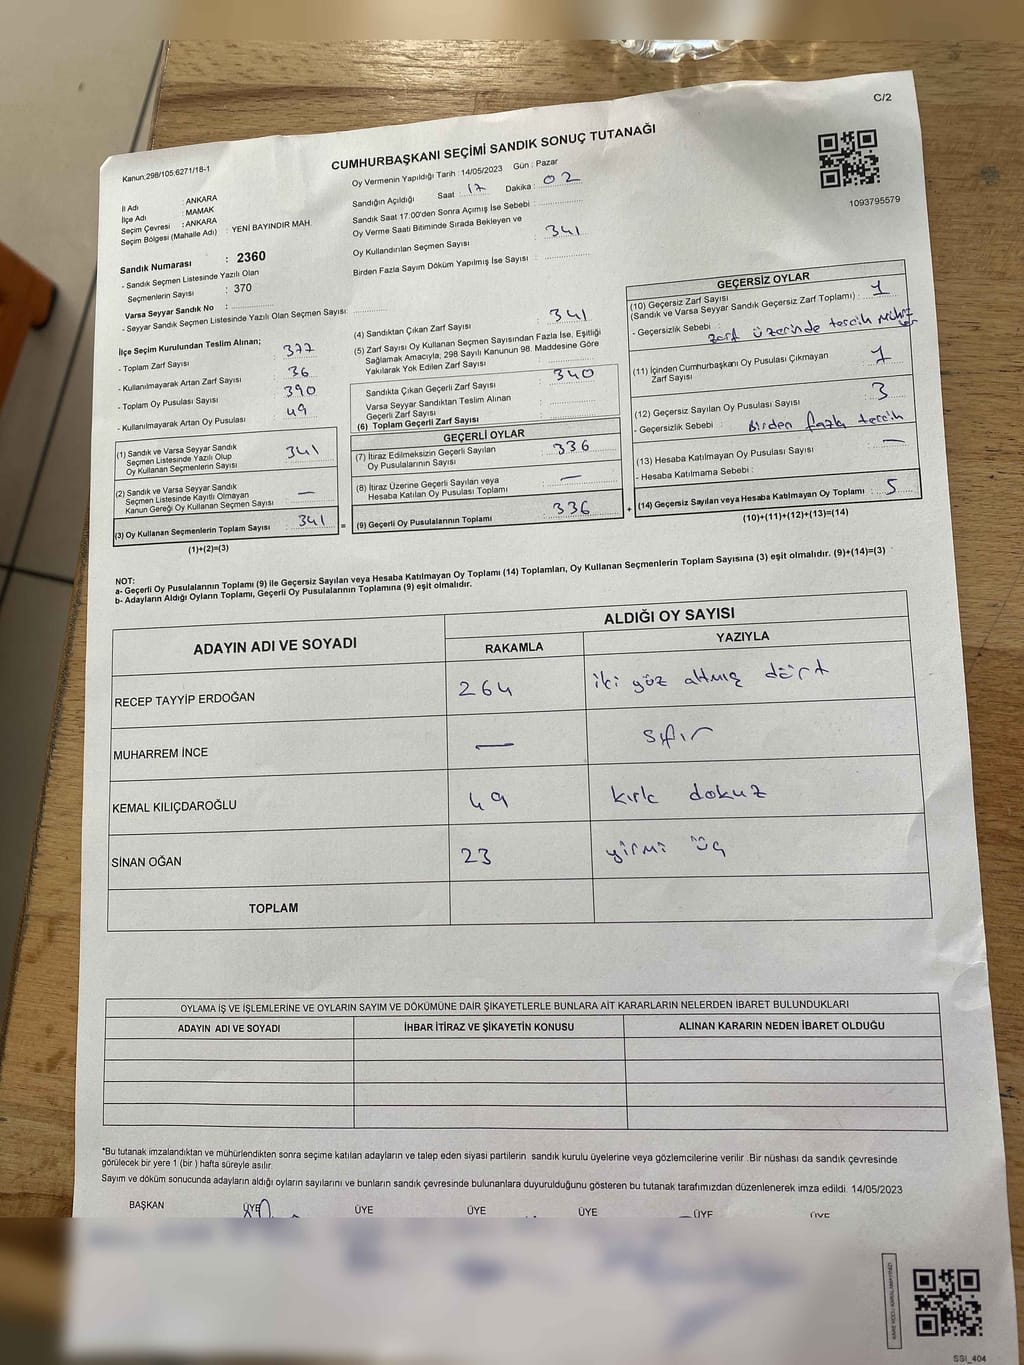 C/2
Kanun:298/105;6271/18-1
CUMHURBAŞKANI SEÇİMİ SANDIK SONUÇ TUTANAĞI
1093795579
İl Adı : ANKARA
İlçe Adı : MAMAK
Seçim Çevresi : ANKARA
Seçim Bölgesi (Mahalle Adı) : YENİ BAYINDIR MAH.
Sandık Numarası : 2360
- Sandık Seçmen Listesinde Yazılı Olan
Seçmenlerin Sayısı : 370
Varsa Seyyar Sandık No :
- Seyyar Sandık Seçmen Listesinde Yazılı Olan Seçmen Sayısı:
Oy Vermenin Yapıldığı Tarih : 14/05/2023 Gün : Pazar
Sandığın Açıldığı Saat : 17 Dakika : 02
Sandık Saat 17:00'den Sonra Açımış İse Sebebi :
Oy Verme Saati Bitiminde Sırada Bekleyen ve
Oy Kullandırılan Seçmen Sayısı : 341
Birden Fazla Sayım Döküm Yapılmış İse Sayısı :
İlçe Seçim Kurulundan Teslim Alınan;
- Toplam Zarf Sayısı : 377
- Kullanılmayarak Artan Zarf Sayısı : 36
- Toplam Oy Pusulası Sayısı : 390
- Kullanılmayarak Artan Oy Pusulası : 49
(1) Sandık ve Varsa Seyyar Sandık
Seçmen Listesinde Yazılı Olup
Oy Kullanan Seçmenlerin Sayısı : 341
(2) Sandık ve Varsa Seyyar Sandık
Seçmen Listesinde Kayıtlı Olmayan
Kanun Gereği Oy Kullanan Seçmen Sayısı : —
(3) Oy Kullanan Seçmenlerin Toplam Sayısı : 341
(1)+(2)=(3)
=
(4) Sandıktan Çıkan Zarf Sayısı : 341
(5) Zarf Sayısı Oy Kullanan Seçmen Sayısından Fazla İse, Eşitliği
Sağlamak Amacıyla; 298 Sayılı Kanunun 98. Maddesine Göre
Yakılarak Yok Edilen Zarf Sayısı :
Sandıkta Çıkan Geçerli Zarf Sayısı : 340
Varsa Seyyar Sandıktan Teslim Alınan
Geçerli Zarf Sayısı :
(6) Toplam Geçerli Zarf Sayısı :
GEÇERLİ OYLAR
(7) İtiraz Edilmeksizin Geçerli Sayılan
Oy Pusulalarının Sayısı : 336
(8) İtiraz Üzerine Geçerli Sayılan veya
Hesaba Katılan Oy Pusulası Toplamı : —
(9) Geçerli Oy Pusulalarının Toplamı : 336
+
GEÇERSİZ OYLAR
(10) Geçersiz Zarf Sayısı
(Sandık ve Varsa Seyyar Sandık Geçersiz Zarf Toplamı) : 1
- Geçersizlik Sebebi : zarf üzerinde tercih
(11) İçinden Cumhurbaşkanı Oy Pusulası Çıkmayan
Zarf Sayısı : 1
(12) Geçersiz Sayılan Oy Pusulası Sayısı : 3
- Geçersizlik Sebebi : Birden fazla tercih
(13) Hesaba Katılmayan Oy Pusulası Sayısı : —
- Hesaba Katılmama Sebebi :
(14) Geçersiz Sayılan veya Hesaba Katılmayan Oy Toplamı : 5
(10)+(11)+(12)+(13)=(14)
NOT:
a- Geçerli Oy Pusulalarının Toplamı (9) ile Geçersiz Sayılan veya Hesaba Katılmayan Oy Toplamı (14) Toplamları, Oy Kullanan Seçmenlerin Toplam Sayısına (3) eşit olmalıdır. (9)+(14)=(3)
b- Adayların Aldığı Oyların Toplamı, Geçerli Oy Pusulalarının Toplamına (9) eşit olmalıdır.
ADAYIN ADI VE SOYADI
ALDIĞI OY SAYISI
RAKAMLA YAZIYLA
RECEP TAYYİP ERDOĞAN 264 iki yüz altmış dört
MUHARREM İNCE — sıfır
KEMAL KILIÇDAROĞLU 49 kırk dokuz
SİNAN OĞAN 23 yirmi üç
TOPLAM
OYLAMA İŞ VE İŞLEMLERİNE VE OYLARIN SAYIM VE DÖKÜMÜNE DAİR ŞİKAYETLERLE BUNLARA AİT KARARLARIN NELERDEN İBARET BULUNDUKLARI
ADAYIN ADI VE SOYADI İHBAR İTİRAZ VE ŞİKAYETİN KONUSU ALINAN KARARIN NEDEN İBARET OLDUĞU
*Bu tutanak imzalandıktan ve mühürlendikten sonra seçime katılan adayların ve talep eden siyasi partilerin sandık kurulu üyelerine veya gözlemcilerine verilir .Bir nüshası da sandık çevresinde
görülecek bir yere 1 (bir ) hafta süreyle asılır.
Sayım ve döküm sonucunda adayların aldığı oyların sayılarını ve bunların sandık çevresinde bulunanlara duyurulduğunu gösteren bu tutanak tarafımızdan düzenlenerek imza edildi. 14/05/2023
BAŞKAN ÜYE ÜYE ÜYE ÜYE ÜYE ÜYE
SSI_404